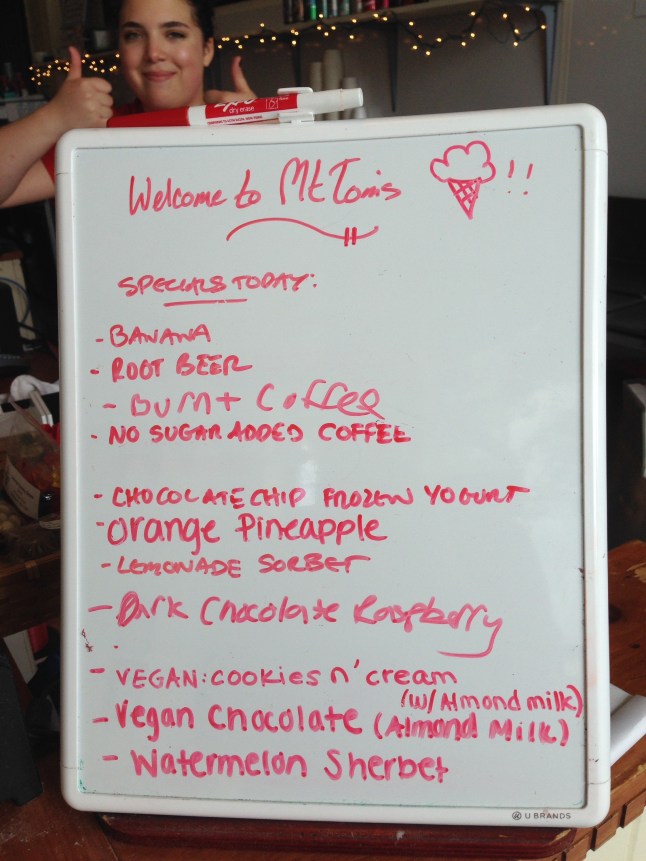 dry erase
Welcome to Mt Tom's !!
SPECIALS TODAY:
- BANANA
- ROOT BEER
- BURNt Coffee
- NO SUGAR ADDED COFFEE
- CHOCOLATE CHIP FROZEN YOGURT
- Orange Pineapple
- LEMONADE SORBET
- Dark Chocolate Raspberry
- VEGAN: COOKIES n' cream
(W/ Almond milk)
- Vegan Chocolate (Almond Milk)
- Watermelon Sherbet
U BRANDS